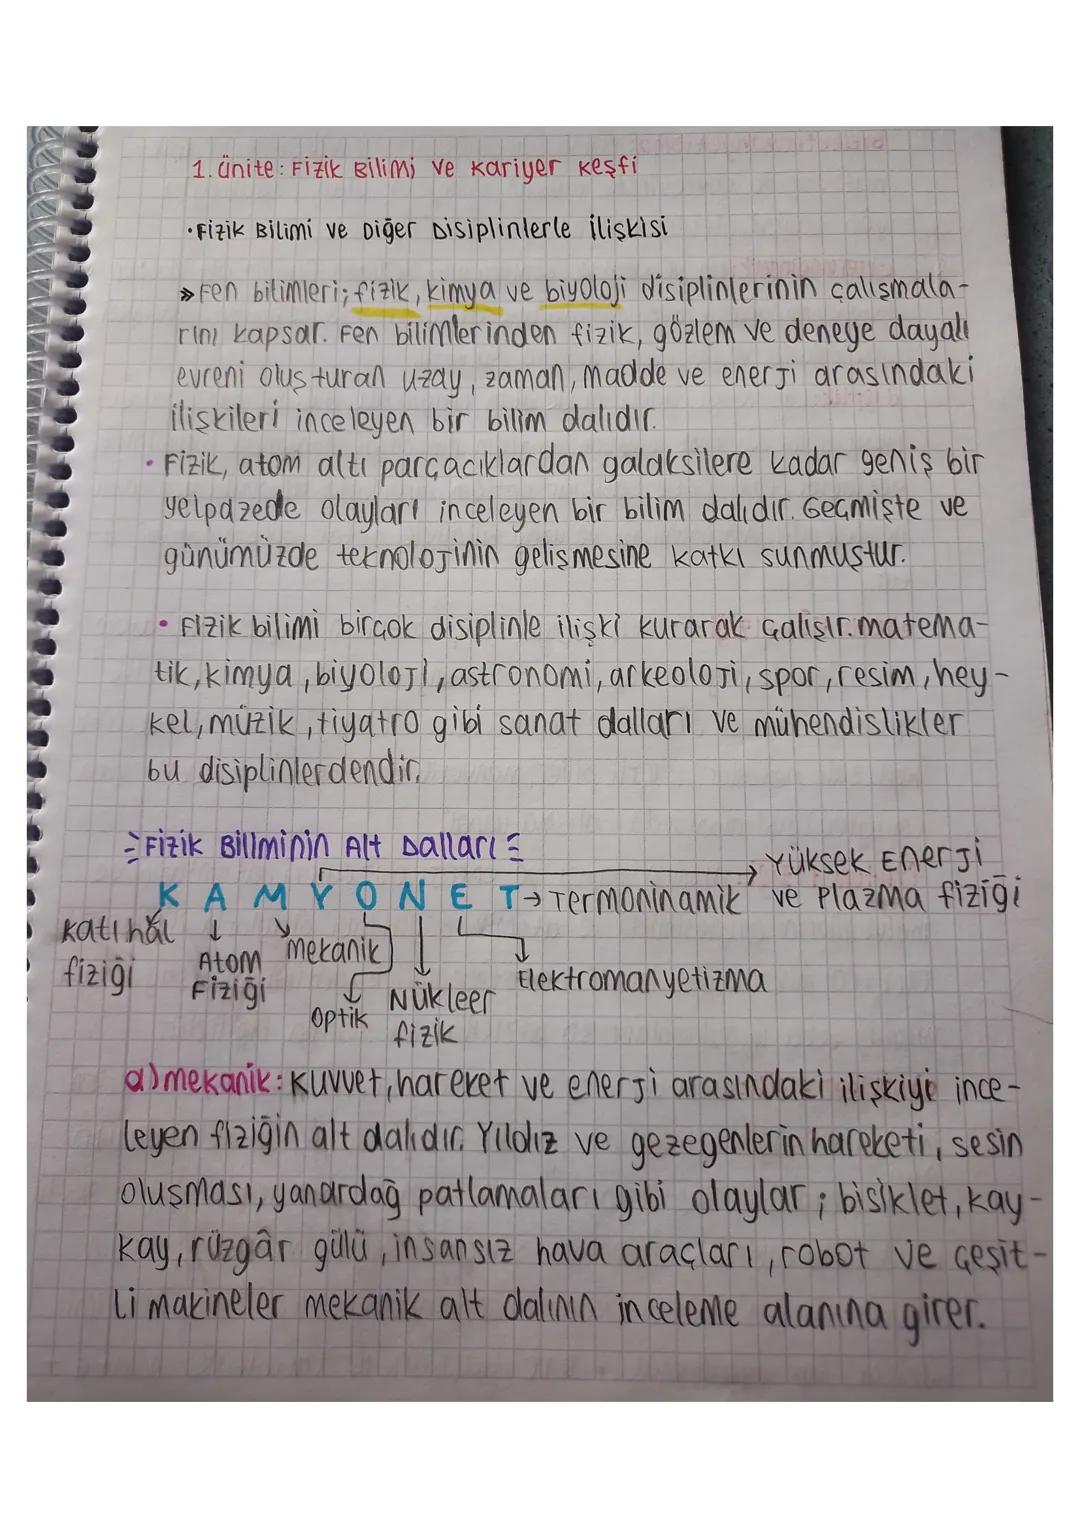 1. ünite: Fizik Bilimi ve Kariyer Keşfi
• Fizik Bilimi ve Diğer Disiplinlerle İlişkisi
» Fen bilimleri; fizik, kimya ve biyoloji disiplinlerinin çalışmala-
rını kapsar. Fen bilimlerinden fizik, gözlem ve deneye dayalı
evreni oluşturan uzay, zaman, madde ve enerji arasındaki
ilişkileri inceleyen bir bilim dalıdır.
• Fizik, atom altı parçacıklardan galaksilere kadar geniş bir
yelpazede olayları inceleyen bir bilim dalıdır. Geçmişte ve
günümüzde teknolojinin gelişmesine katkı sunmuştur.
• Fizik bilimi birçok disiplinle ilişki kurarak çalışır. matema-
tik, kimya, biyoloji, astronomi, arkeoloji, spor, resim, hey-
kel, müzik, tiyatro gibi sanat dalları ve mühendislikler
bu disiplinlerdendir.
Fizik Biliminin Alt Dalları
Yüksek Enerji
ve Plazma fiziği
K A M Y O N E T → Termoninamik
Katıhâl
fiziği
Atom
Fiziği
mekanik
Optik
Nükleer
fizik
Elektromanyetizma
a) mekanik: Kuvvet, hareket ve enerji arasındaki ilişkiyi ince-
leyen fiziğin alt dalıdır. Yıldız ve gezegenlerin hareketi, sesin
oluşması, yanardağ patlamaları gibi olaylar; bisiklet, kay-
kay, rüzgâr gülü, insansız hava araçları, robot ve çeşit-
li makineler mekanik alt dalının inceleme alanına girer.